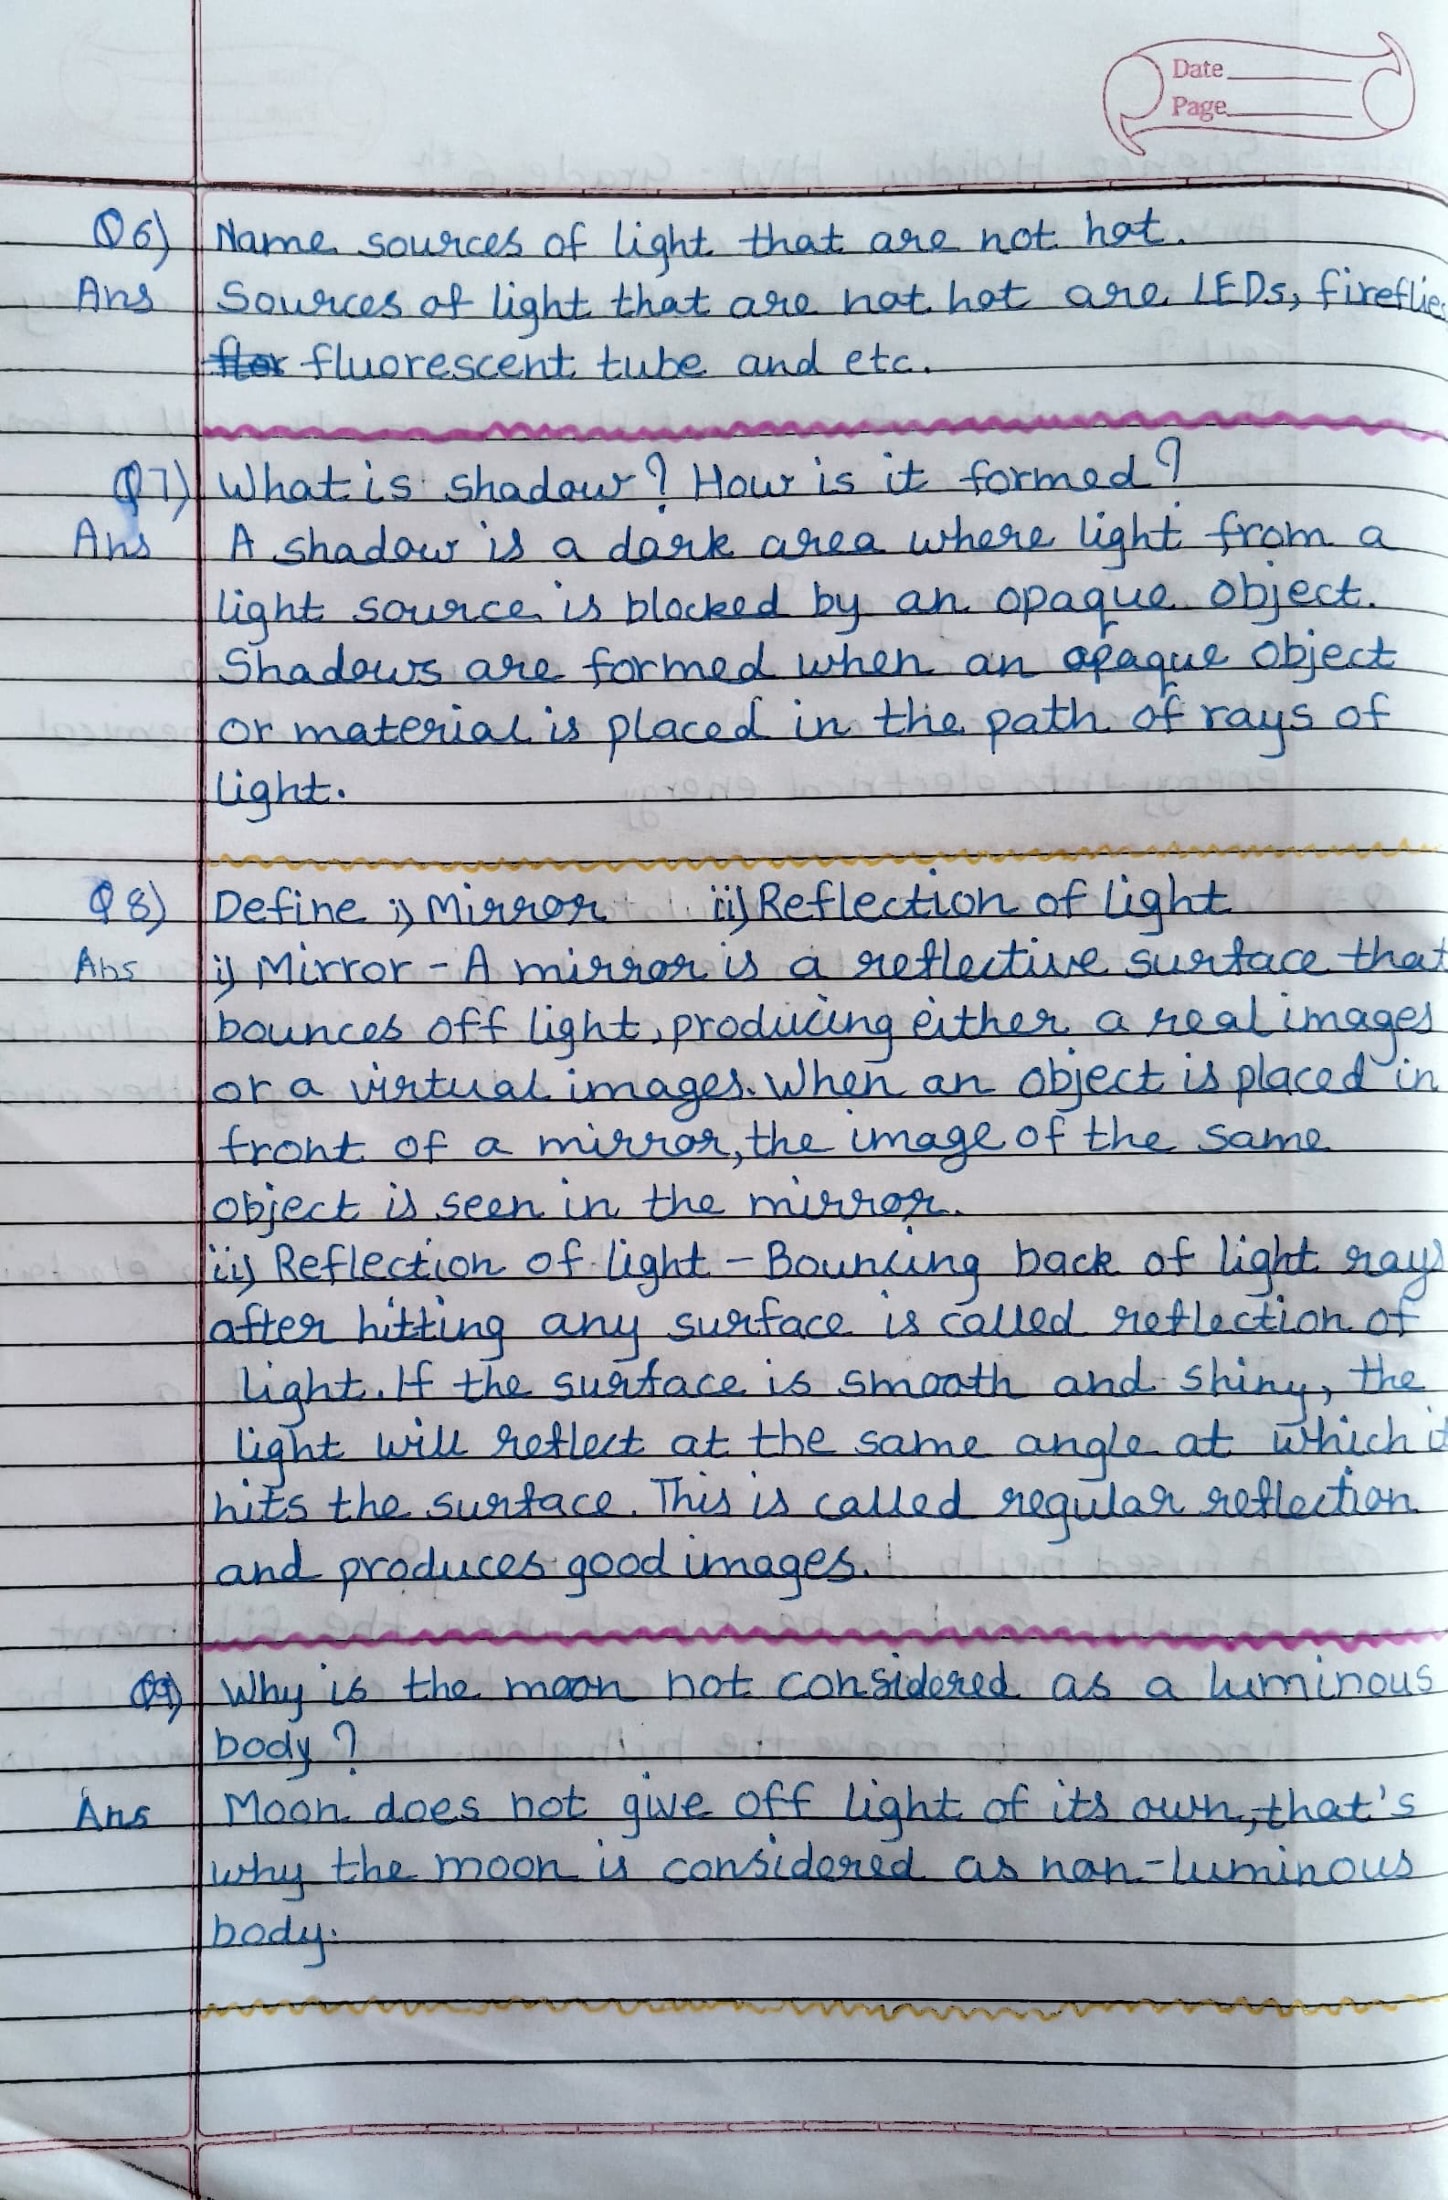 Date
Page
Q6) Name sources of light that are not hot.
Ans Sources of light that are not hot are LEDs, fireflie
fluorescent tube and etc.
Q7) What is shadow? How is it formed?
Ans A shadow is a dark area where light from a
light source is blocked by an opaque object.
Shadows are formed when an opaque object
or material is placed in the path of rays of
light.
Q8) Define i) Mirror ii) Reflection of light
Ans i) Mirror - A mirror is a reflective surface that
bounces off light, producing either a real images
or a virtual images. When an object is placed in
front of a mirror, the image of the same
object is seen in the mirror.
ii) Reflection of light - Bouncing back of light rays
after hitting any surface is called reflection of
light. If the surface is smooth and shiny, the
light will reflect at the same angle at which it
hits the surface. This is called regular reflection
and produces good images.
Q9) Why is the moon not considered as a luminous
body?
Ans Moon does not give off light of its own, that's
why the moon is considered as non-luminous
body.